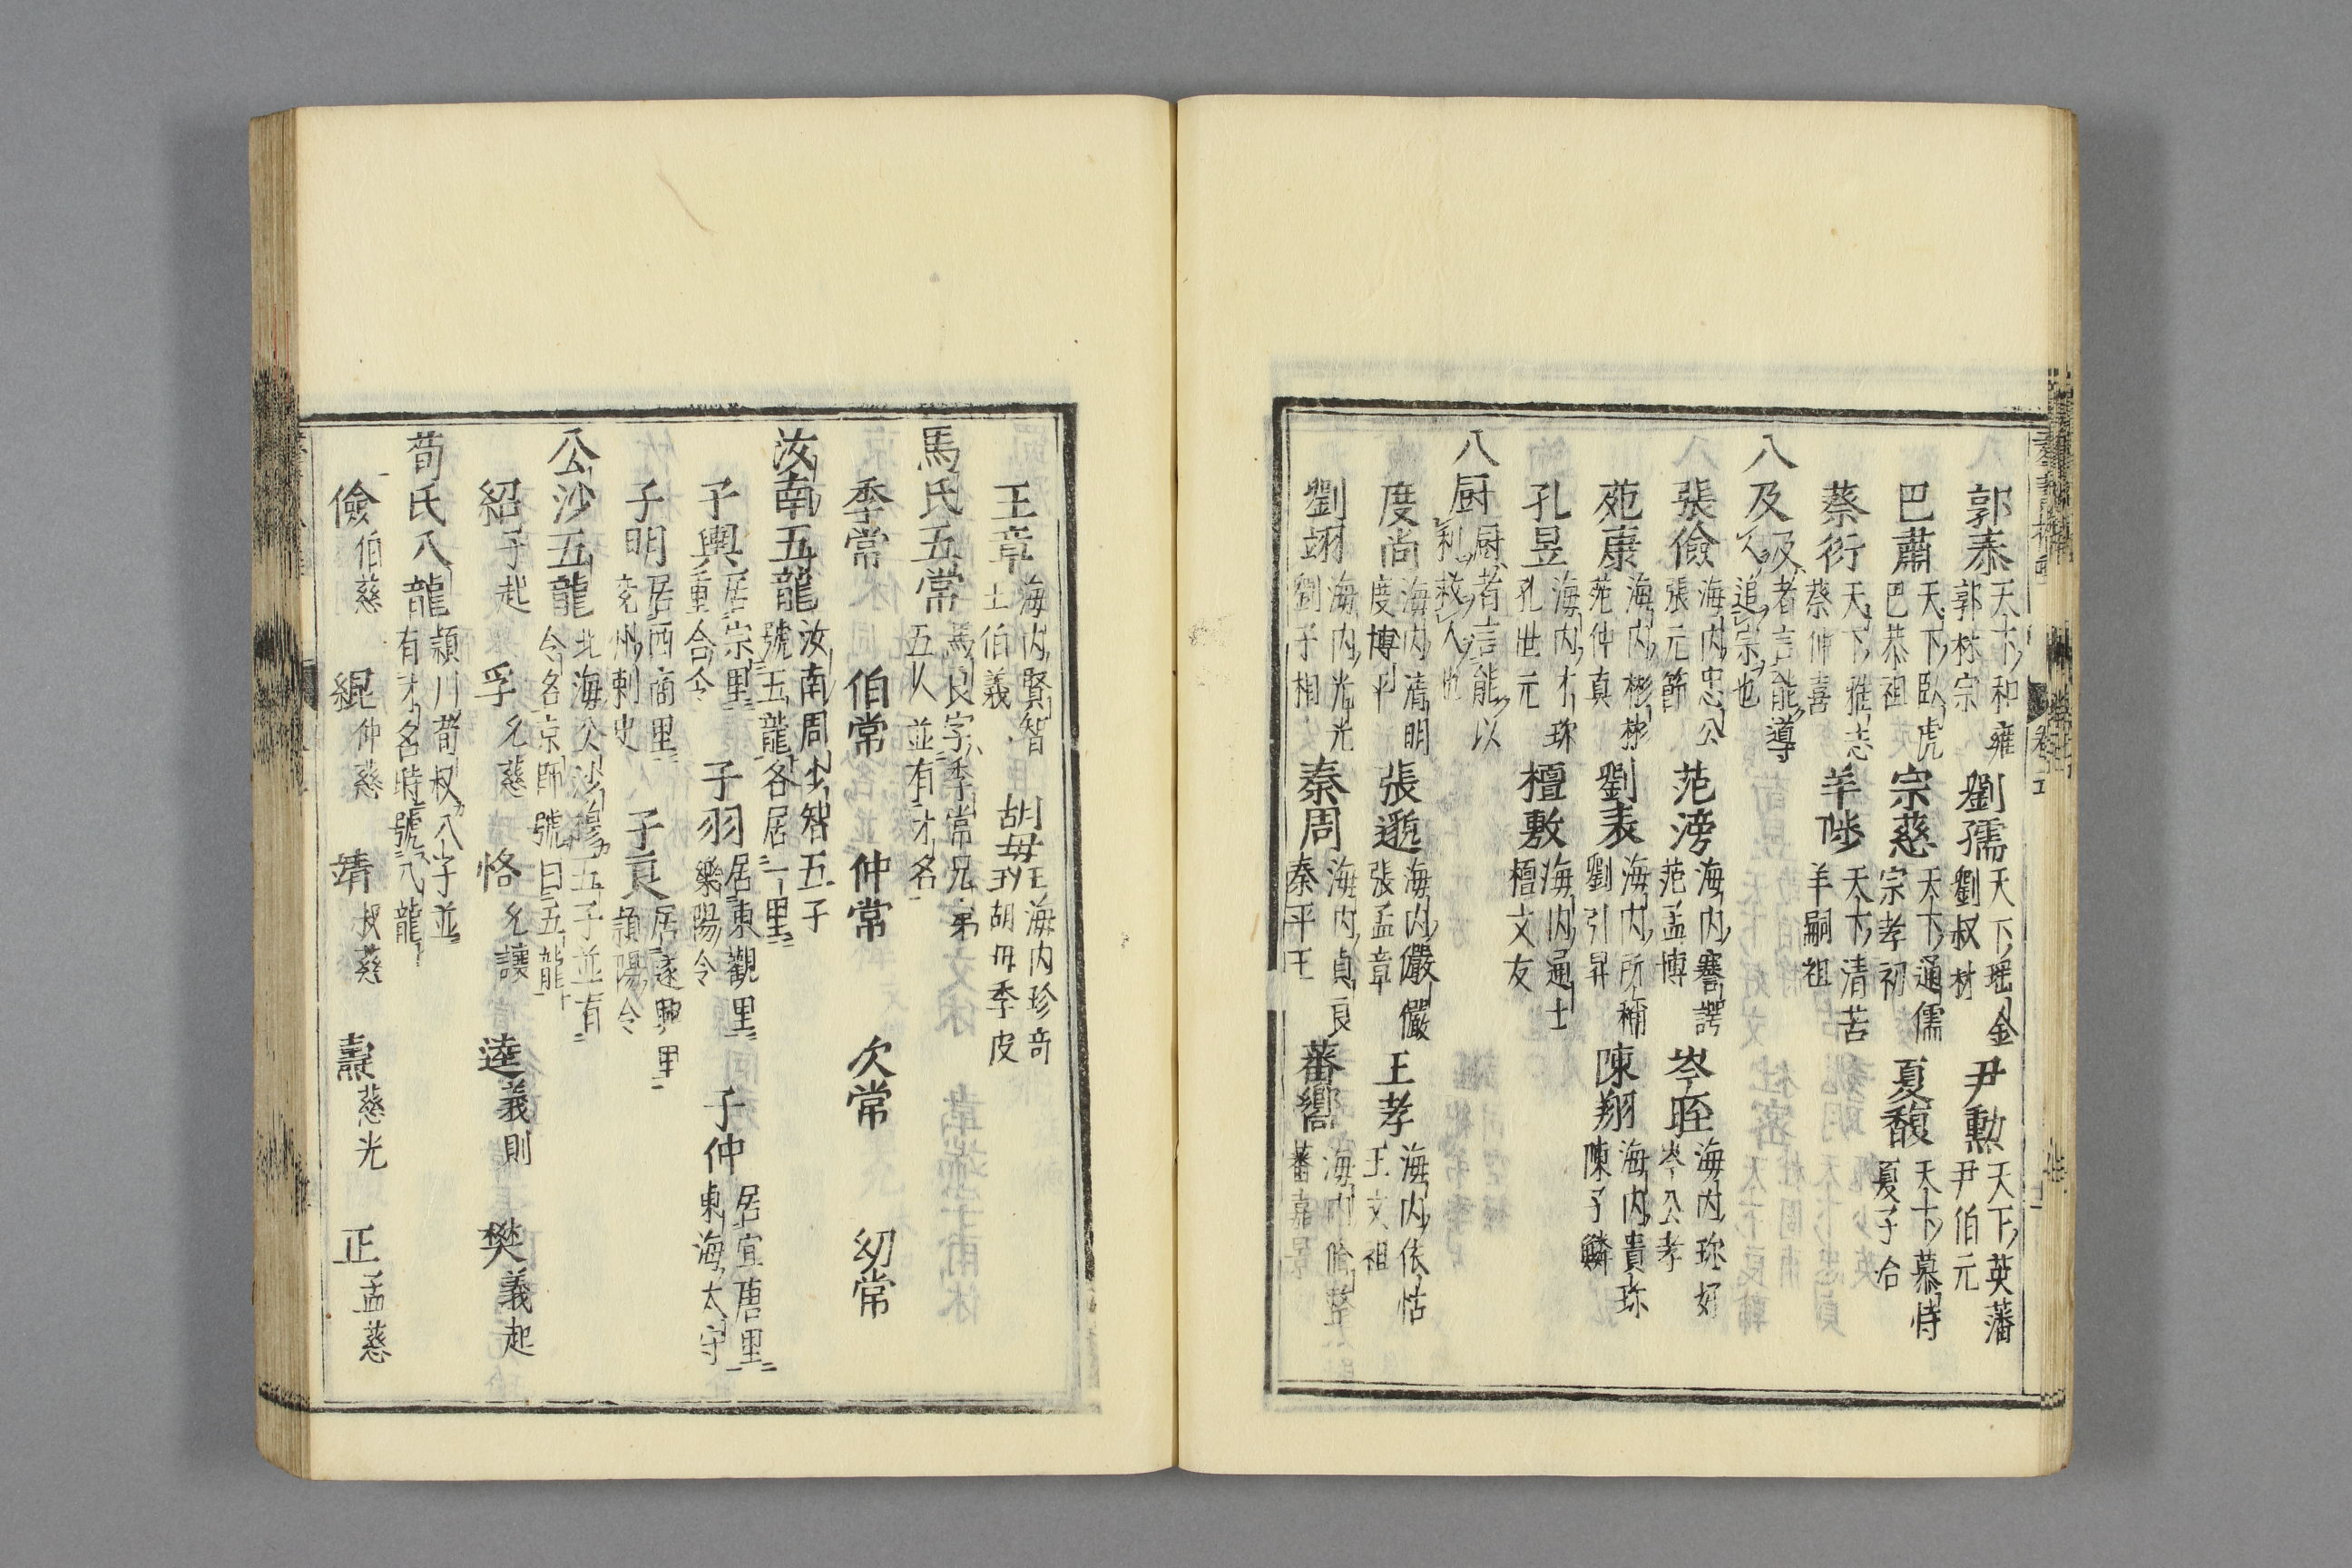 郭泰 天下和雍郭林宗 劉孺 天下瑶金劉叔材 尹勲 天下英藩尹伯元
巴蕭 天下臥虎巴恭祖 宗慈 天下通儒宗孝初 夏馥 天下慕恃夏子合
蔡衍 天下雅志蔡仲喜 羊陟 天下清苦羊嗣祖
八及 及者言能導人追宗也
張儉 海内忠公張元節 范滂 海内謇諤范孟博 岑晊 海内珎好岑公孝
苑康 海内彬彬范仲真 劉表 海内所稱劉引昇 陳翔 海内貴珎陳子鱗
孔昱 海内才珎孔世元 檀敷 海内通士檀文友
八厨 厨者言能以利救人也
度尚 海内清明度博平 張邈 海内儼儼張孟章 王孝 海内依怙王文祖
劉翊 海内光光劉子相 秦周 海内貞良秦平王 蕃嚮 海内脩整蕃嘉景
王章 海内賢智王伯義 胡毋班 海内珍奇胡毋季皮
馬氏五常 馬良字季常兄弟五人並有才名
季常 伯常 仲常 次常 幼常
汝南五龍 汝南周少智五子號五龍各居一里
子輿 居宗里重合令 子羽 居東觀里樂陽令 子仲 居宜唐里東海太守
子明 居西商里兖州剌史 子良 居遂興里潁陽令
公沙五龍 北海公沙穆五子並有令名京師號曰五龍
紹 子起 孚 允慈 恪 允讓 逵 義則 樊 義起
荀氏八龍 潁川荀叔八子並有才名時號八龍
儉 伯慈 緄 仲慈 靖 叔慈 燾 慈光 正 孟慈